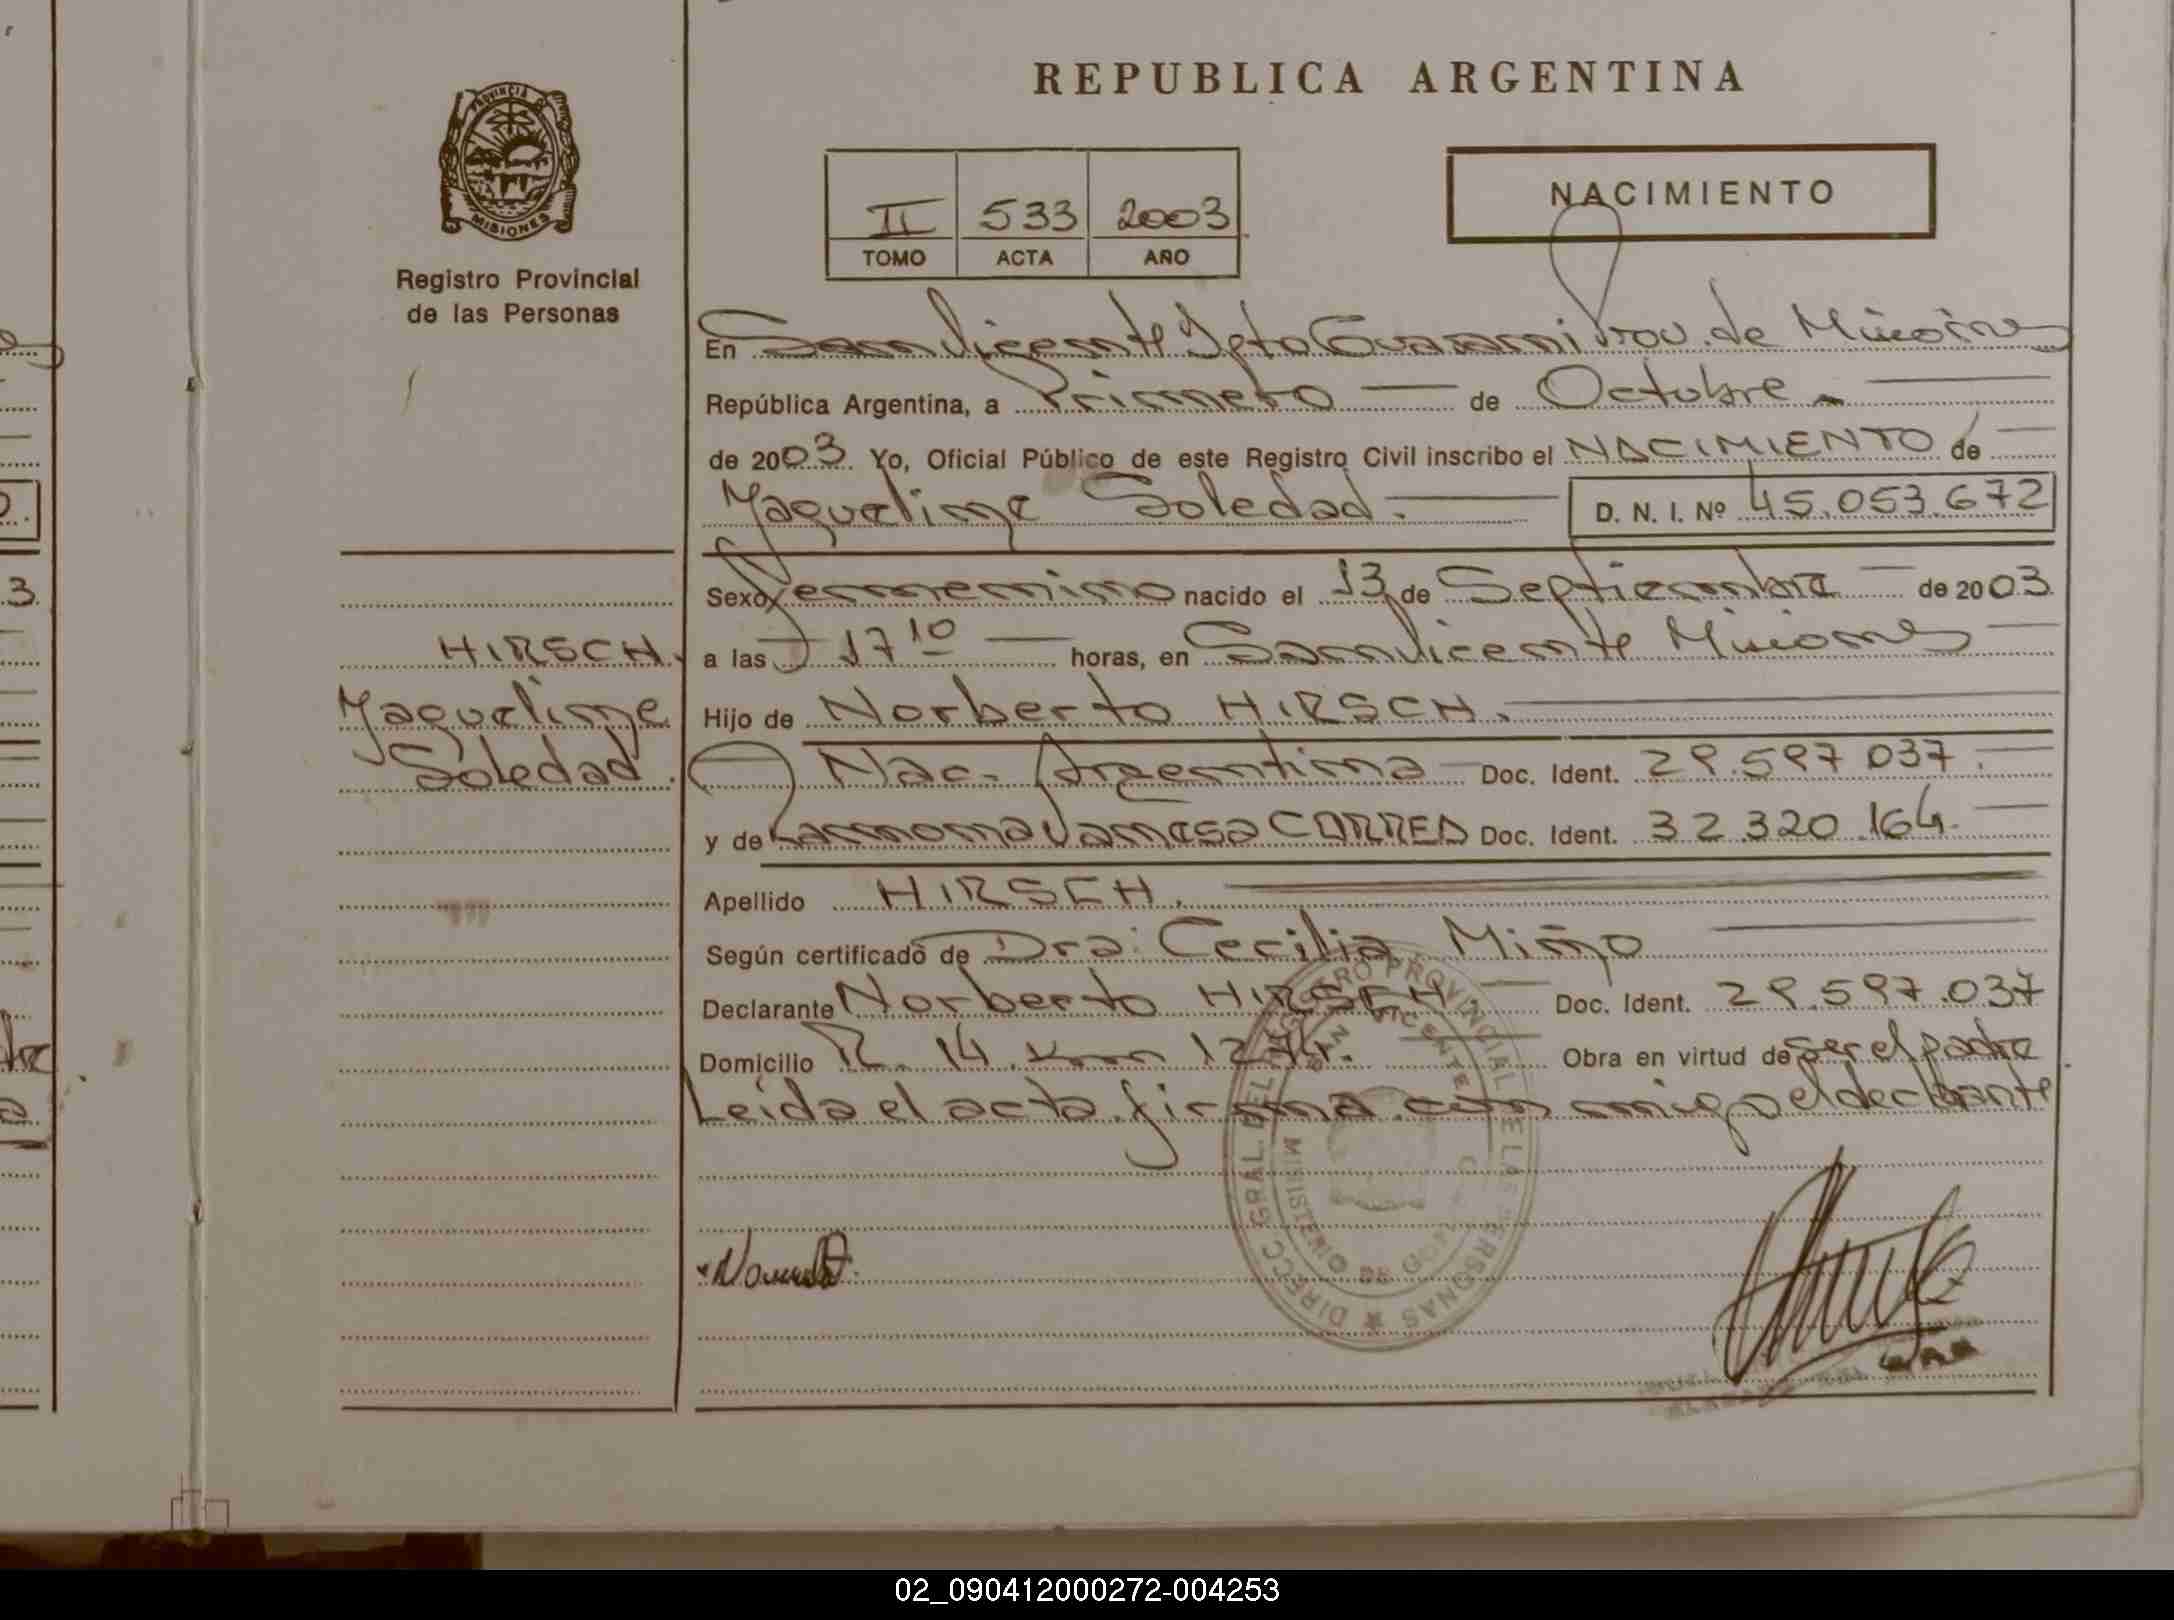 REPUBLICA ARGENTINA
PROVINCIA DE
MISIONES
Registro Provincial
de las Personas
II 533 2003
TOMO ACTA AÑO
NACIMIENTO
En San Vicente Dpto Guarani Prov. de Misiones
República Argentina, a Primero de Octubre
de 2003 Yo, Oficial Público de este Registro Civil inscribo el NACIMIENTO de
Yaqueline Soledad. D. N. I. Nº 45.053.672
Sexo Femenino nacido el 13 de Septiembre de 2003
a las 17 10 horas, en San Vicente Misiones
Hijo de Norberto HIRSCH.
Nac. Argentina Doc. Ident. 29.597.037.
y de Ramona Vanesa CORREA Doc. Ident. 32.320.164.
Apellido HIRSCH.
Según certificado de Dra: Cecilia Miño
Declarante Norberto HIRSCH. Doc. Ident. 29.597.037
Domicilio R. 14 km Obra en virtud de ser el padre
Leida el acta firma con migo el declarante
HIRSCH.
Yaqueline
Soledad.
DIRECC GRAL. DEL REGISTRO PROVINCIAL DE LAS PERSONAS
SAN VICENTE
MINISTERIO DE GOB
02_090412000272-004253